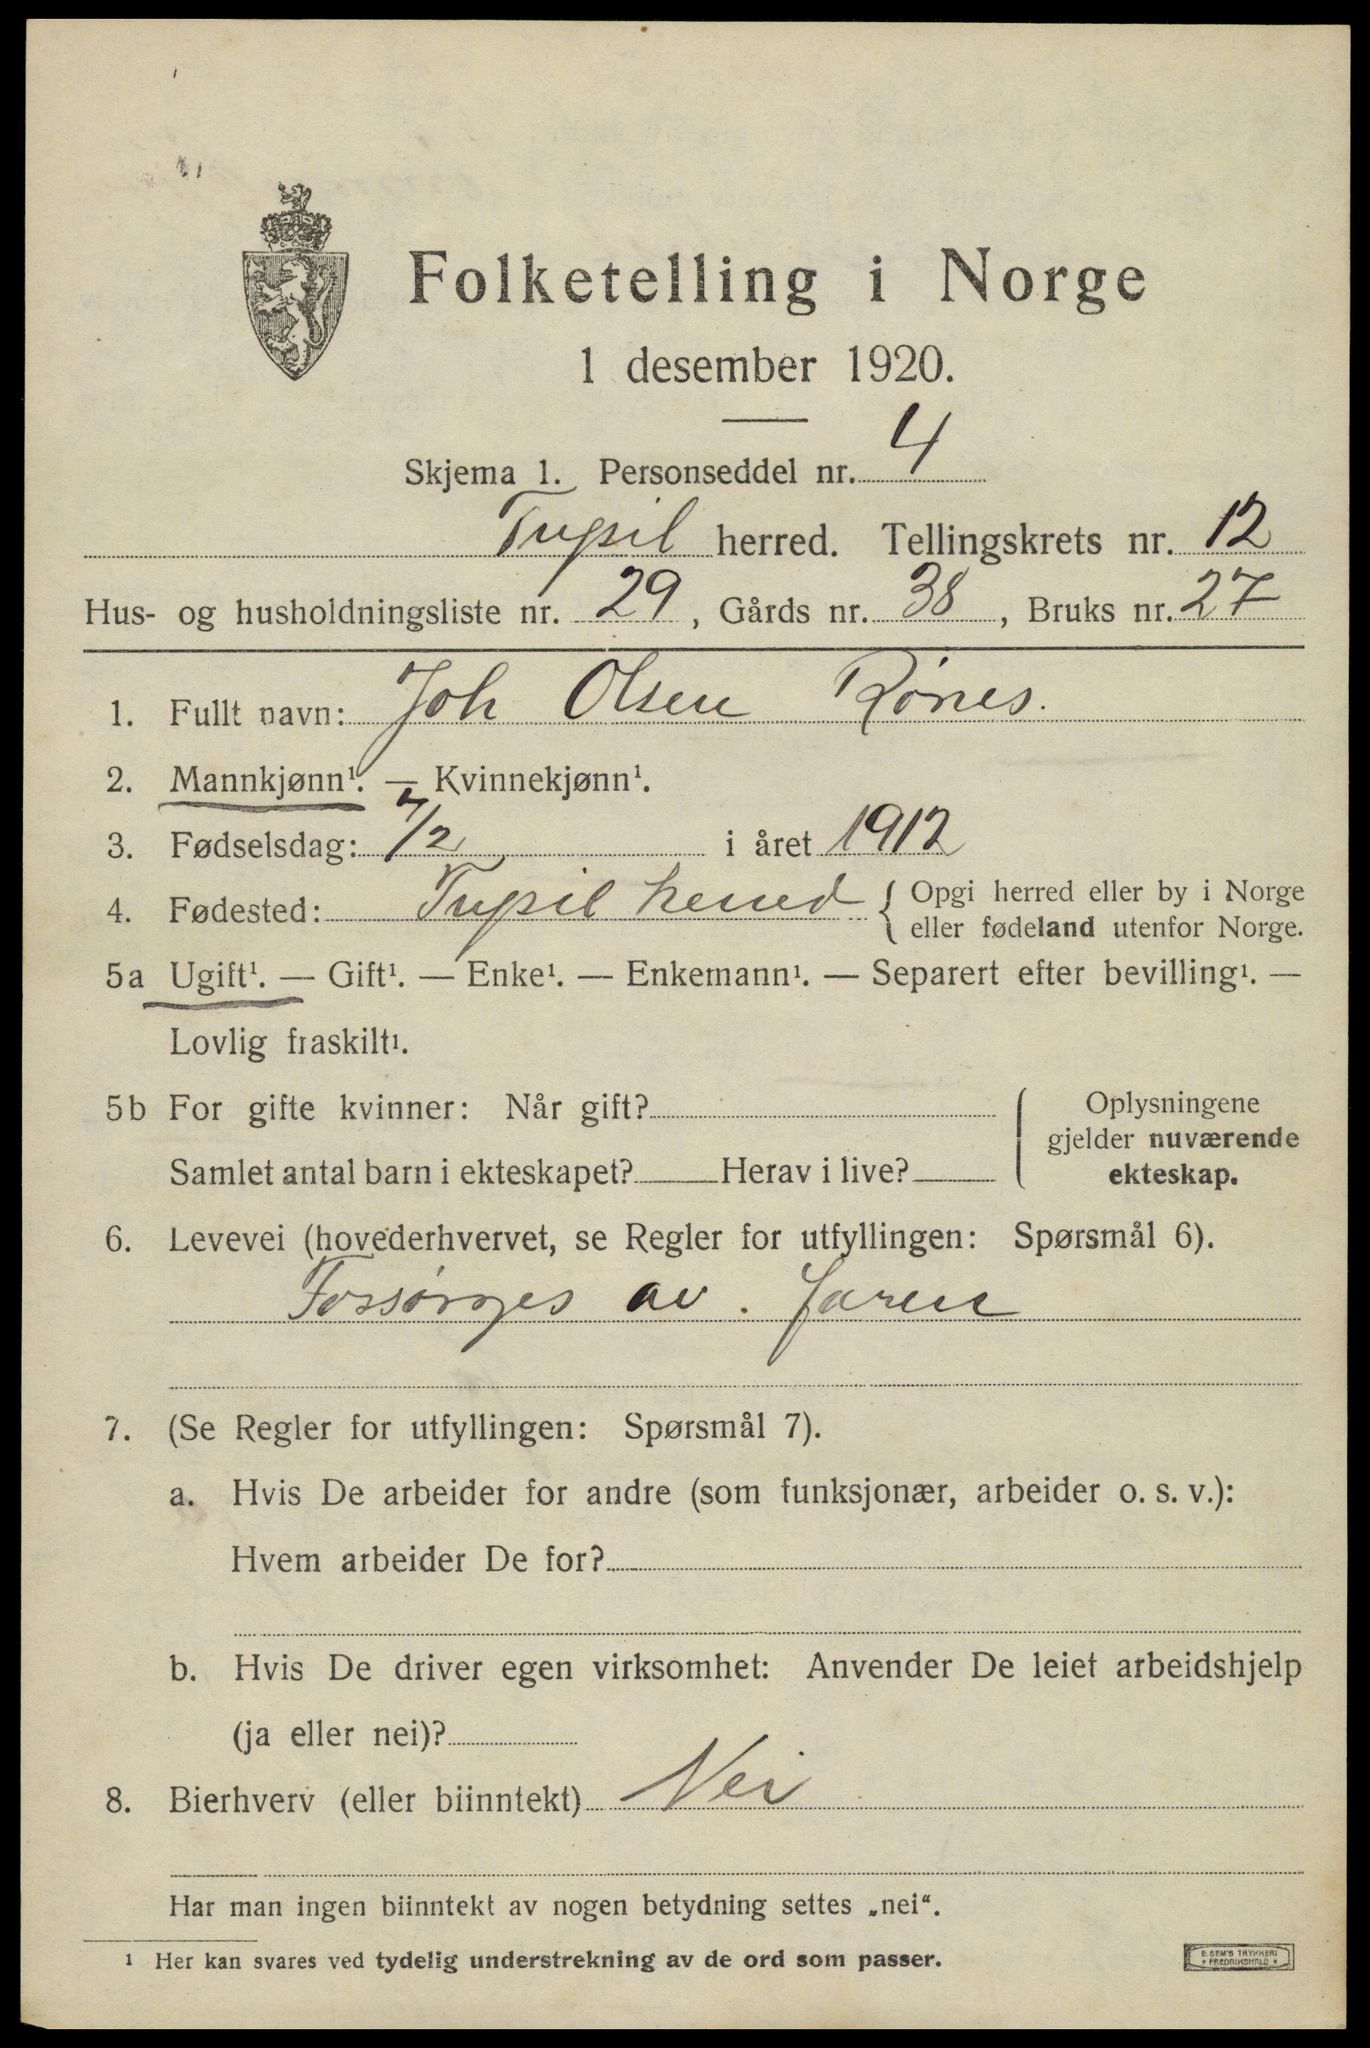 Folketelling i Norge
1 desember 1920.
Skjema 1. Personseddel nr. 4
Trysil herred. Tellingskrets nr. 12
Hus- og husholdningsliste nr. 29, Gårds nr. 38, Bruks nr. 27
1. Fullt navn: Joh Olsen Rønes.
2. Mannkjønn¹. — Kvinnekjønn¹.
3. Fødselsdag: 7/2 i året 1912
4. Fødested: Trysil herred { Opgi herred eller by i Norge
eller fødeland utenfor Norge.
5a Ugift¹. — Gift¹. — Enke¹. — Enkemann¹. — Separert efter bevilling¹. —
Lovlig fraskilt¹.
5b For gifte kvinner: Når gift?
Samlet antal barn i ekteskapet? Herav i live?
Oplysningene
gjelder nuværende
ekteskap.
6. Levevei (hovederhvervet, se Regler for utfyllingen: Spørsmål 6).
Forsørges av. faren
7. (Se Regler for utfyllingen: Spørsmål 7).
a. Hvis De arbeider for andre (som funksjonær, arbeider o. s. v.):
Hvem arbeider De for?
b. Hvis De driver egen virksomhet: Anvender De leiet arbeidshjelp
(ja eller nei)?
8. Bierhverv (eller biinntekt) Nei
Har man ingen biinntekt av nogen betydning settes „nei“.
¹ Her kan svares ved tydelig understrekning av de ord som passer.
E. SEM'S TRYKKERI
• FREDRIKSHALD •